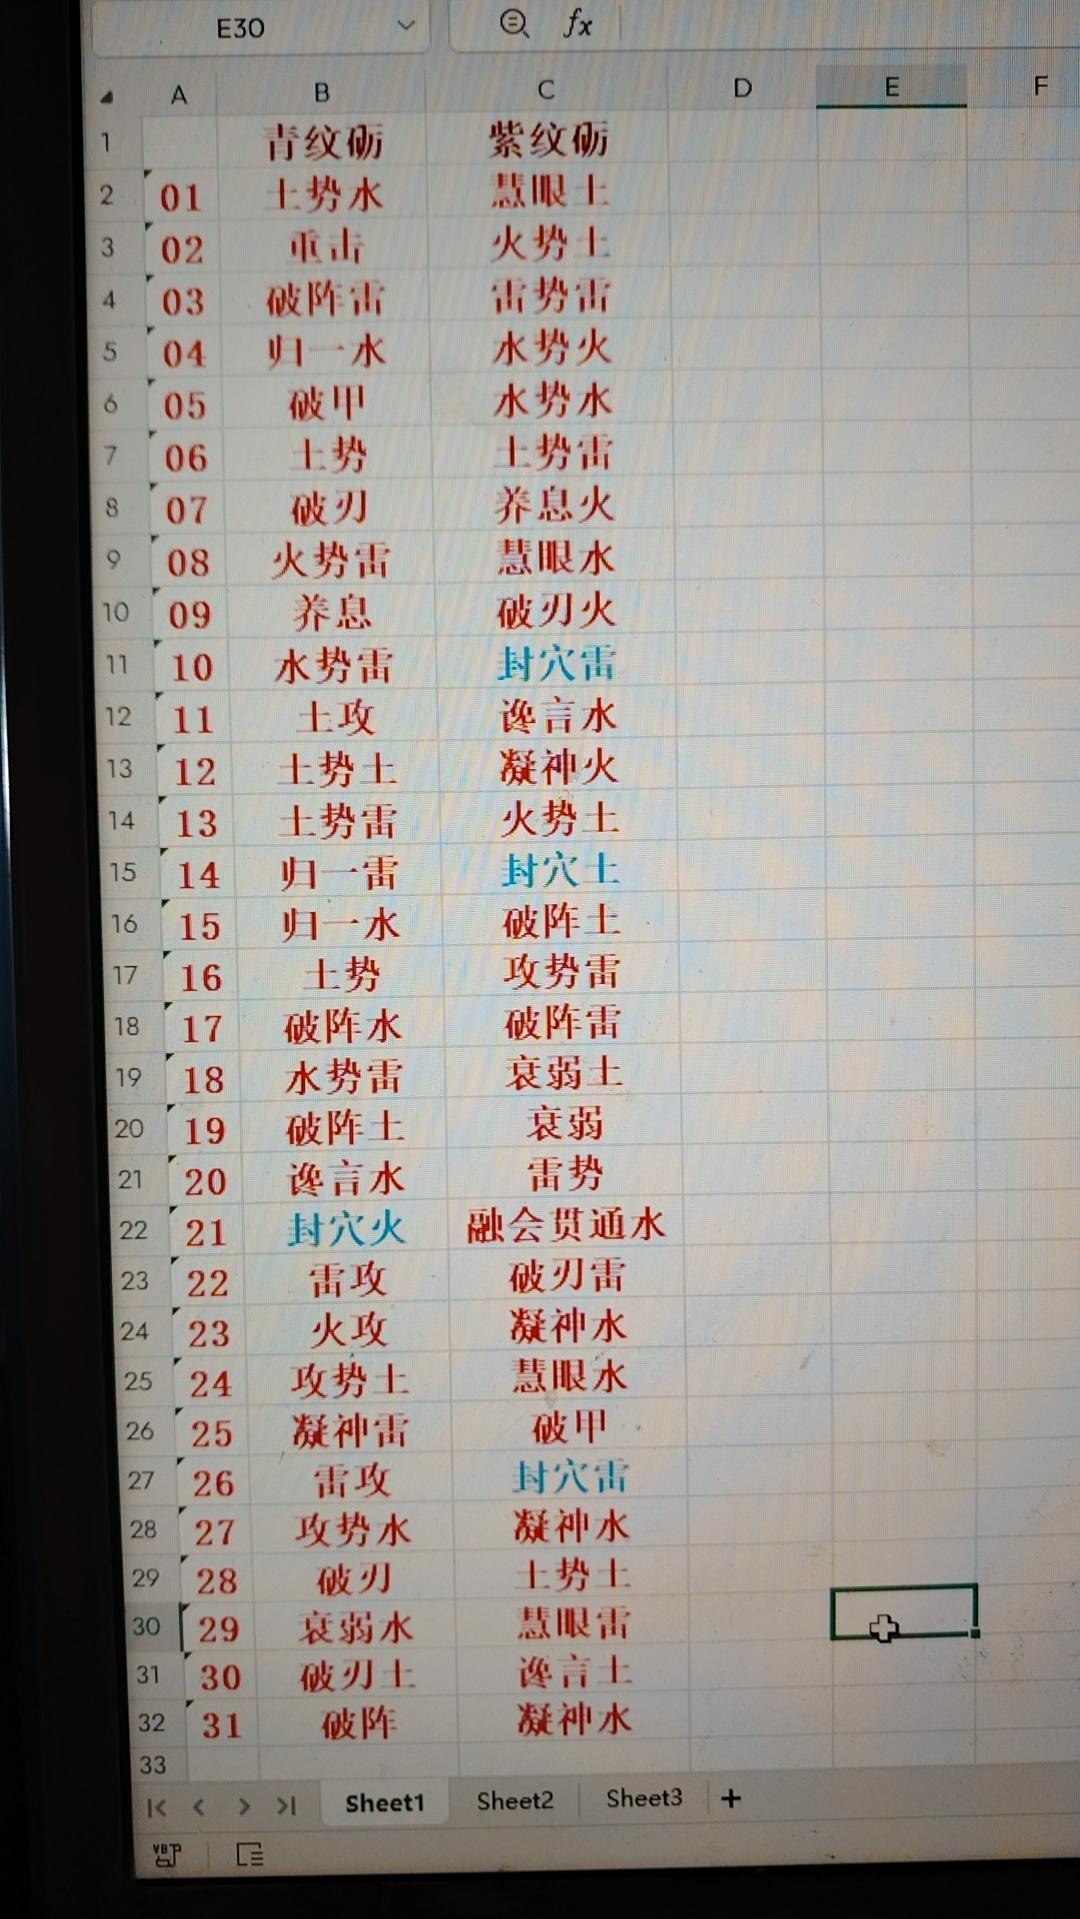 E30 fx
A B C D E F
1 青纹砺 紫纹砺
2 01 土势水 慧眼土
3 02 重击 火势土
4 03 破阵雷 雷势雷
5 04 归一水 水势火
6 05 破甲 水势水
7 06 土势 土势雷
8 07 破刃 养息火
9 08 火势雷 慧眼水
10 09 养息 破刃火
11 10 水势雷 封穴雷
12 11 土攻 谗言水
13 12 土势土 凝神火
14 13 土势雷 火势土
15 14 归一雷 封穴土
16 15 归一水 破阵土
17 16 土势 攻势雷
18 17 破阵水 破阵雷
19 18 水势雷 衰弱土
20 19 破阵土 衰弱
21 20 谗言水 雷势
22 21 封穴火 融会贯通水
23 22 雷攻 破刃雷
24 23 火攻 凝神水
25 24 攻势土 慧眼水
26 25 凝神雷 破甲
27 26 雷攻 封穴雷
28 27 攻势水 凝神水
29 28 破刃 土势土
30 29 衰弱水 慧眼雷
31 30 破刃土 谗言土
32 31 破阵 凝神水
33
Sheet1 Sheet2 Sheet3 +